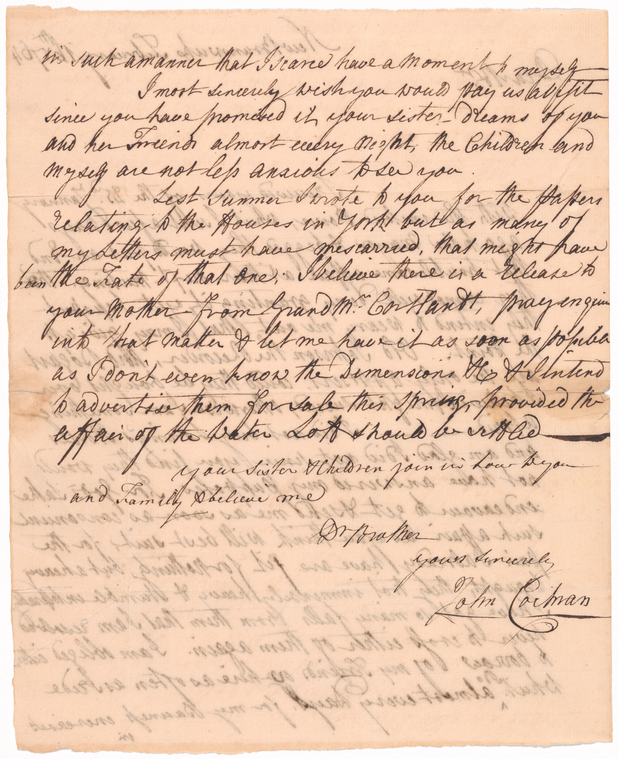 in such a manner that I scarce have a Moment to myself
I most sincerely wish you would pay us a Visit
since you have promised it, your Sister dreams of you
and her Friends almost every Night, the Children and
myself are not less anxious to see you.
Last Summer I wrote to you for the Papers
relating to the Houses in York but as many of
my Letters must have miscarried, that might have
been the Fate of that one, I believe there is a Release to
your Mother from Grand Mr. Cortlandt, pray enquire
into that matter & let me have it as soon as possible
as I don't even know the Dimensions &c & I intend
to advertise them for sale this Spring, provided the
affair of the Water Lott should be settled
your Sister & Children join in Love to you
and Family & believe me
Dr Brother
yours sincerely
John Cochran